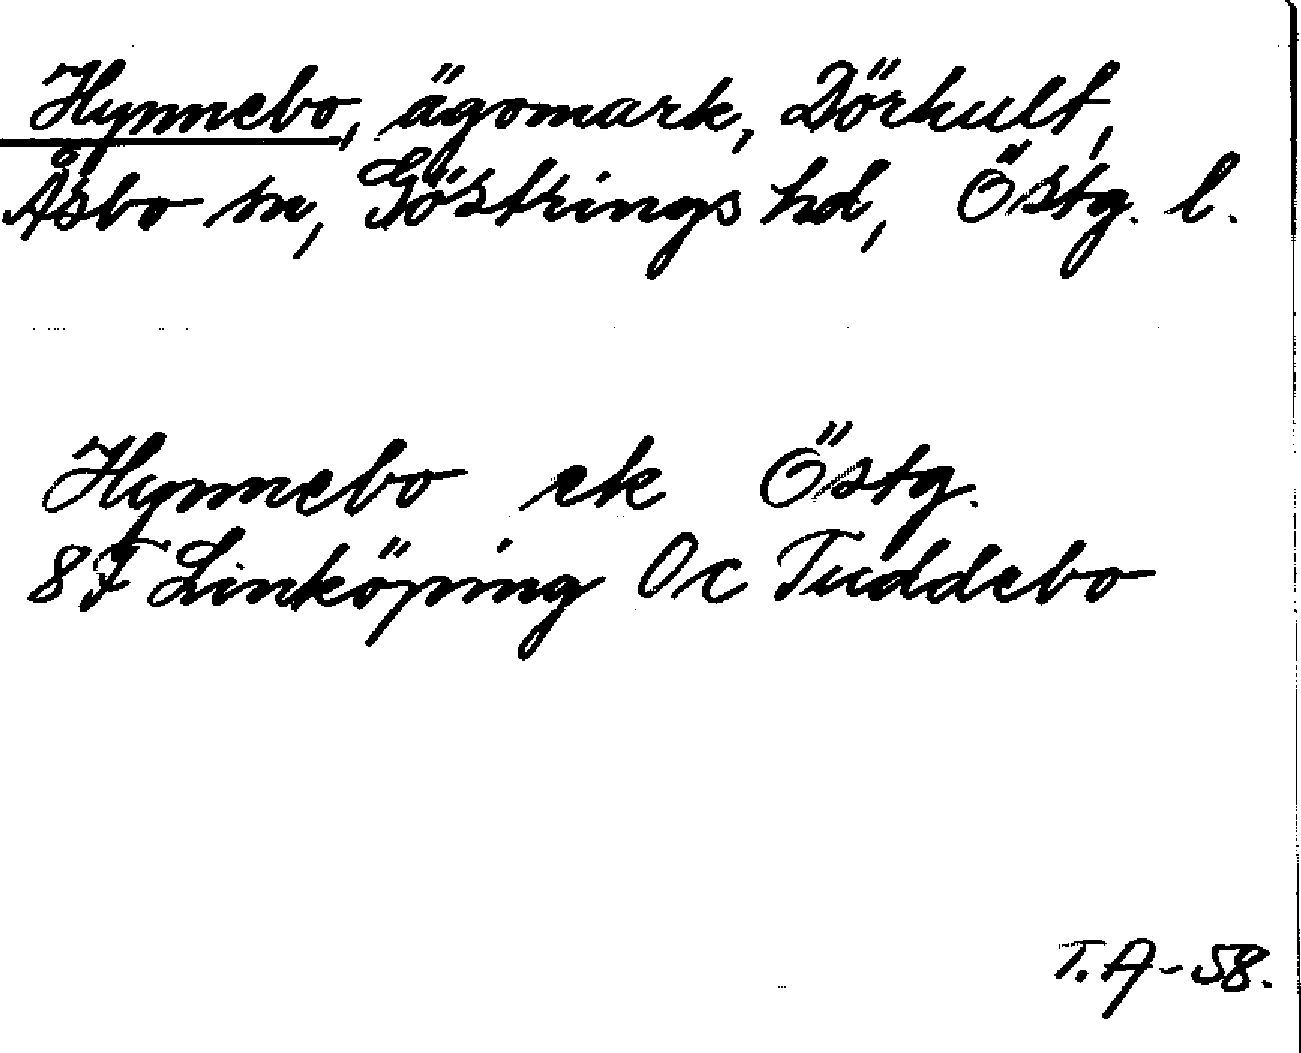 Hynnebo, ägomark, Dörkult,
Åsbo sn, Göstrings hd, Östg. l.
Hynnebo ek Östg.
8F Linköping Oc Tuddebo
T.A-58.